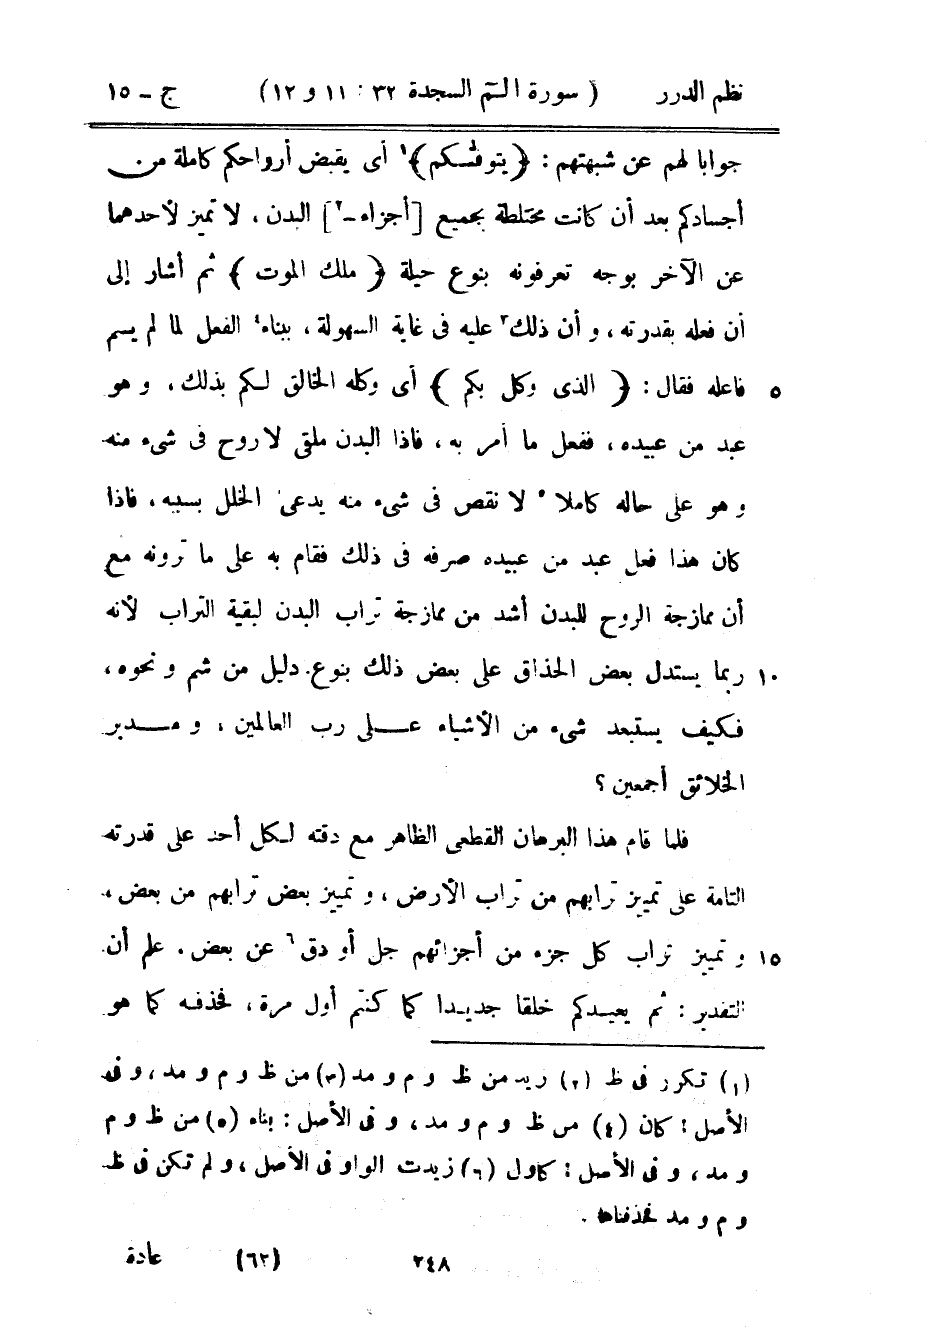 نظم الدرر ( سورة الـٓمّ السجدة ٣٢ : ١١ و ١٢ ) ج – ١٥
جوابا لهم عن شبهتهم : ﴿ يتوفّٰىكم ﴾١ أى يقبض أرواحكم كاملة من
أجسادكم بعد أن كانت مختلطة بجميع [ أجزاء -٢ ] البدن ، لا تميز لأحدهما
عن الآخر بوجه تعرفونه بنوع حيلة ﴿ ملك الموت ﴾ ثم أشار إلى
أن فعله بقدرته ، و أن ذلك٣ عليه فى غاية السهولة ، ببناء٤ الفعل لما لم يسم
٥ فاعله فقال : ﴿ الذى وكل بكم ﴾ أى وكله الخالق لكم بذلك ، و هو
عبد من عبيده ، ففعل ما أمر به ، فاذا البدن ملقى لا روح فى شىء منه
و هو على حاله كاملا٥ لا نقص فى شىء منه يدعى الخلل بسببه ، فاذا
كان هذا فعل عبد من عبيده صرفه فى ذلك فقام به على ما ترونه مع
أن ممازجة الروح للبدن أشد من ممازجة تراب البدن لبقية التراب لأنه
١٠ ربما يستدل بعض الحذاق على بعض ذلك بنوع دليل من شم و نحوه ،
فكيف يستبعد شىء من الأشياء على رب العالمين ، و مدبر
الخلائق أجمعين ؟
فلما قام هذا البرهان القطعى الظاهر مع دقته لكل أحد على قدرته
التامة على تمييز ترابهم من تراب الأرض ، و تمييز بعض ترابهم من بعض ،
١٥ و تمييز تراب كل جزء من أجزائهم جل أو دق٦ عن بعض . علم أن
التقدير : ثم يعيدكم خلقا جديدا كما كنتم أول مرة ، فحذفه كما هو
(١) تكرر فى ظ (٢) زيد من ظ و م و مد (٣) من ظ و م و مد ، و فى
الأصل : كان (٤) من ظ و م و مد ، و فى الأصل : بناء (٥) من ظ و م
و مد ، و فى الأصل : كاول (٦) زيدت الواو فى الأصل ، و لم تكن فى ظ
و م و مد فحذفناها .
٢٤٨ (٦٢) عادة